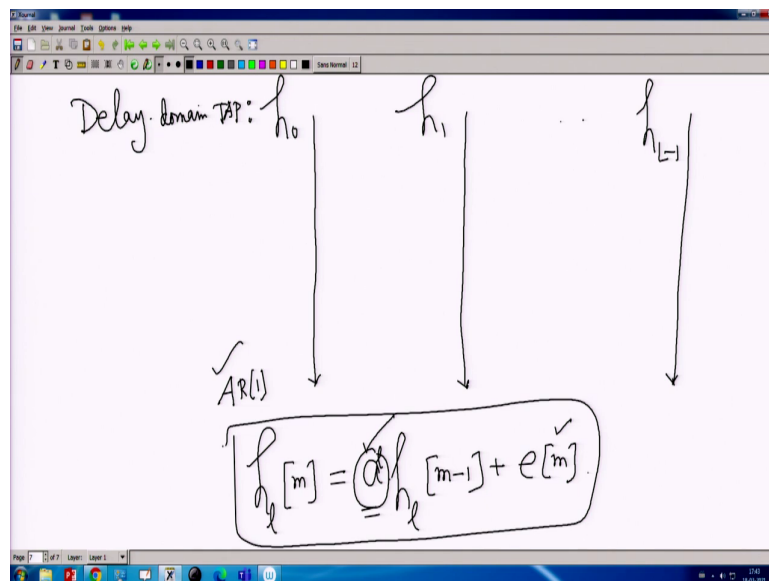 Journal
File Edit View Journal Tools Options Help
Sans Normal 12
Delay-domain TAP: h₀ h₁ . . h_{L-1}
AR(1)
h_ℓ[m] = a h_ℓ[m-1] + e[m]
Page 7 of 7 Layer: Layer 1
17:43